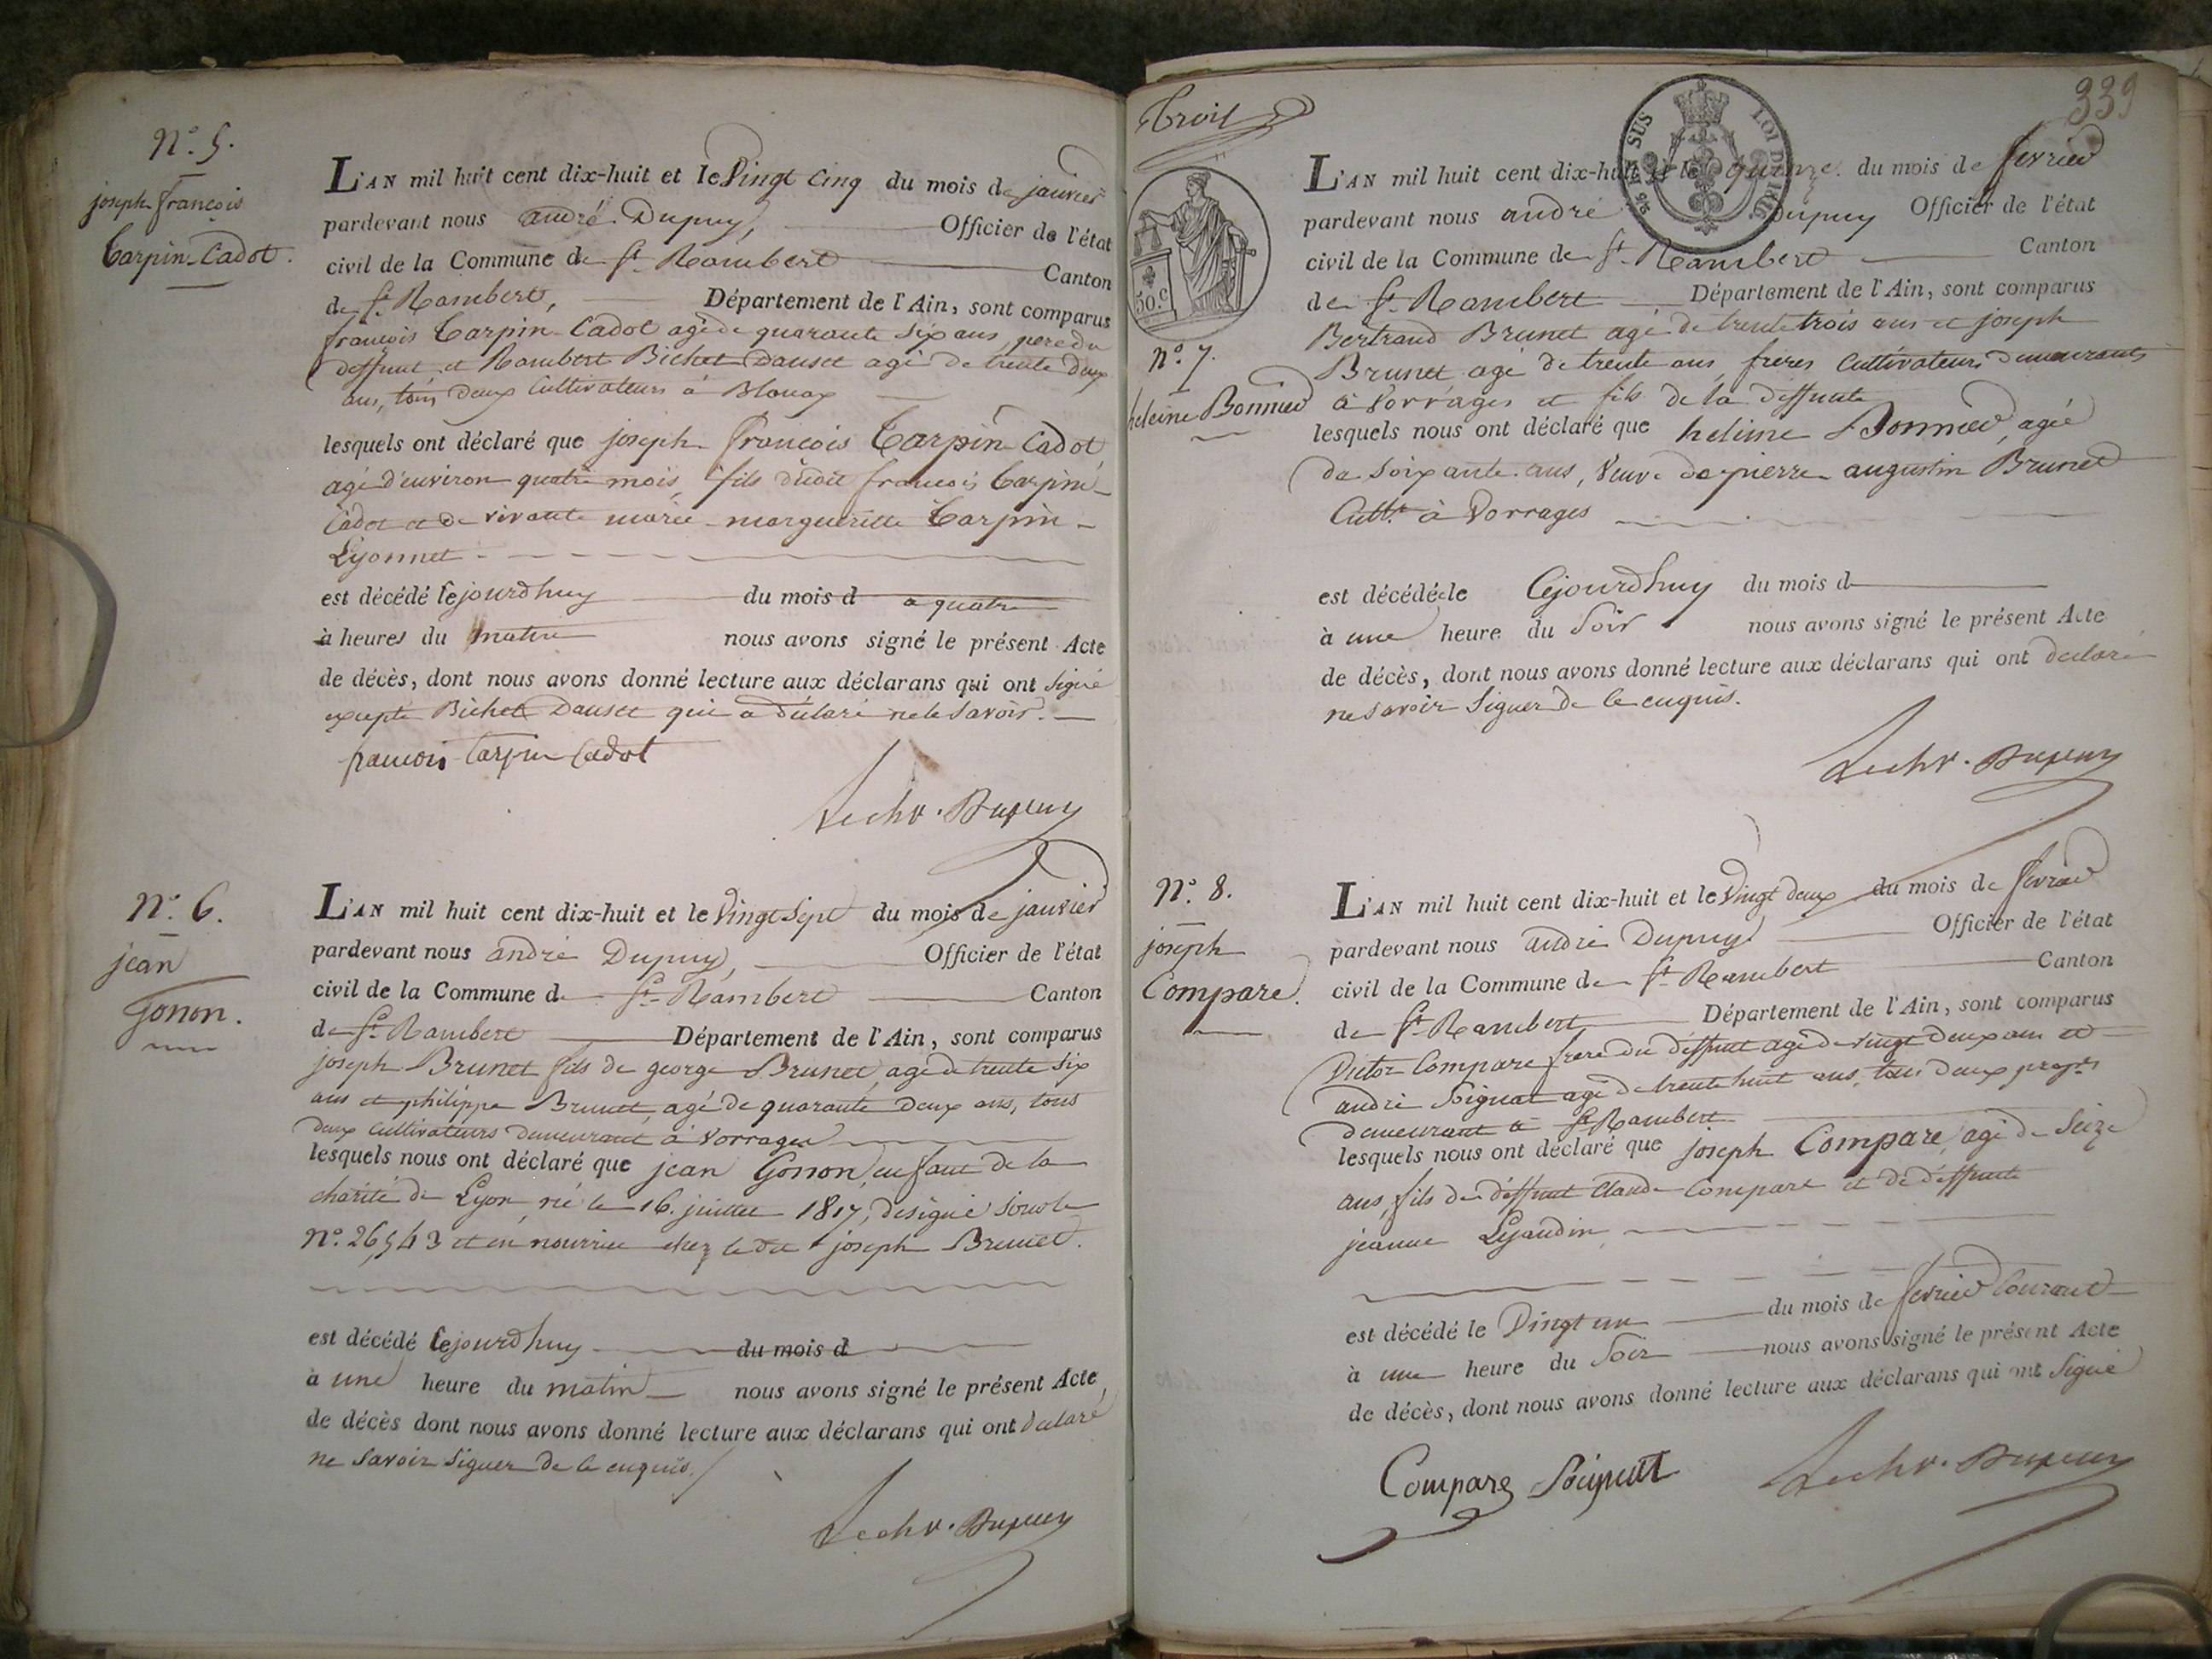 N.° 5.
joseph françois
Carpin-Cadot.
L'AN mil huit cent dix-huit et le Vingt Cinq du mois de janvier
pardevant nous andré Dupuy, Officier de l'état
civil de la Commune de St. Rambert Canton
de St. Rambert, Département de l'Ain, sont comparus
françois Carpin-Cadot agé de quarante Six ans, pere du
deffunt et Rambert Bichet Dauset agé de trente deux
ans, tous deux Cultivateurs à Blouax
lesquels ont déclaré que joseph françois Carpin Cadot
agé d'environ quatre mois, fils dudit francois Carpin-
Cadot et de vivante marie-margueritte Carpin-
Lyonnet
est décédé cejourdhuy du mois d à quatre
à heures du matin nous avons signé le présent Acte
de décès, dont nous avons donné lecture aux déclarans qui ont Signé
excepté Bichet Dauset qui a déclaré ne le Savoir.
francois Carpin Cadot
Dupuy
N.° 6.
jean
Gonon.
L'AN mil huit cent dix-huit et le Vingt Sept du mois de janvier
pardevant nous andré Dupuy, Officier de l'état
civil de la Commune de St. Rambert Canton
de St. Rambert Département de l'Ain, sont comparus
joseph Brunet fils de george Brunet, agé de trente Six
ans et philippe Brunet, agé de quarante Deux ans, tous
deux Cultivateurs demeurant à Vorrages
lesquels nous ont déclaré que jean Gonon, enfant de la
charité de Lyon, né le 16. juillet 1817, désigné sous le
N.° 26,543 et en nourrice chez le dit joseph Brunet.
est décédé cejourdhuy du mois d
à une heure du matin nous avons signé le présent Acte,
de décès dont nous avons donné lecture aux déclarans qui ont déclaré
ne Savoir Signer de ce enquis.
Dupuy
Trois
339
30.c
N.° 7.
heleine Bonnier
L'AN mil huit cent dix-huit et le quinze du mois de fevrier
pardevant nous andré Dupuy Officier de l'état
civil de la Commune de St. Rambert Canton
de St. Rambert Département de l'Ain, sont comparus
Bertrand Brunet agé de trente trois ans et joseph
Brunet agé de trente ans, frères Cultivateurs demeurants
à Vorrages et fils de la deffunte
lesquels nous ont déclaré que heleine Bonnier, agée
de Soixante ans, Veuve de pierre augustin Brunet
Cultr. à Vorrages
est décédée le Cejourdhuy du mois d
à une heure du Soir nous avons signé le présent Acte
de décès, dont nous avons donné lecture aux déclarans qui ont declaré
ne Savoir Signer de Ce enquis.
Dupuy
N.° 8.
joseph
Compare.
L'AN mil huit cent dix-huit et le Vingt deux du mois de fevrier
pardevant nous andré Dupuy Officier de l'état
civil de la Commune de St. Rambert Canton
de St. Rambert, Département de l'Ain, sont comparus
Victor Compare frere du deffunt agé de vingt deux ans et
andré Soignat agé de trente huit ans, tous deux propres
demeurant à St Rambert
lesquels nous ont déclaré que joseph Compare, agé de Seize
ans, fils de deffunt Claude Compare et de deffunte
jeanne Lejaudin
est décédé le Vingt un du mois de fevrier Courant
à une heure du Soir nous avons signé le présent Acte
de décès, dont nous avons donné lecture aux déclarans qui ont Signé
Compare Soignat
Dupuy